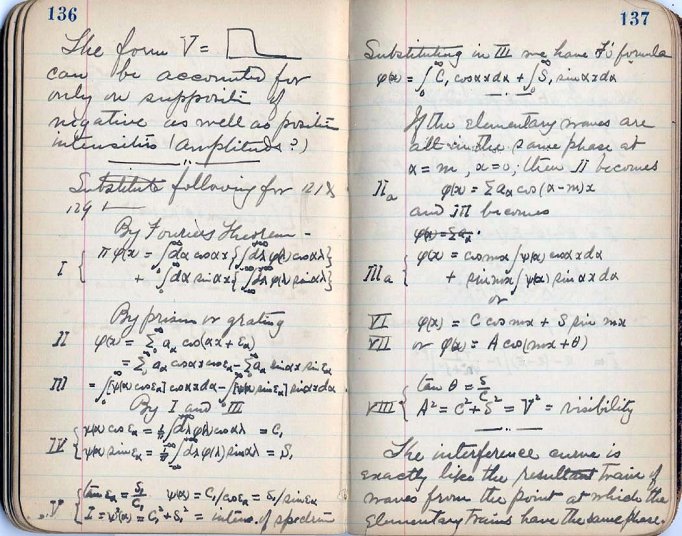 136
The form V =
can be accounted for
only on supposition of
negative as well as positive
intensities (Amplitudes?)
Substitute following for 121 &
129
By Fouriers Theorem -
I { π φ(x) = ∫dα cos αx {∫dλ φ(λ) cos αλ}
+ ∫dα sin αx {∫dλ φ(λ) sin αλ}
By prism or grating
II φ(x) = Σ aα cos(αx + εα)
= Σ aα cos αx cos εα - Σ aα sin αx sin εα
III = ∫[ψ(α) cos εα] cos αx dα - ∫[ψ(α) sin εα] sin αx dα
By I and III
IV { ψ(α) cos εα = 1/π ∫dλ φ(λ) cos αλ = C₁
ψ(α) sin εα = 1/π ∫dλ φ(λ) sin αλ = S₁
V { tan εα = S₁/C₁ ψ(α) = C₁/cos εα = S₁/sin εα
I = ψ²(α) = C₁² + S₁² = intens. of spectrum
137
Substituting in III we have F's formula
φ(x) = ∫ C₁ cos αx dα + ∫ S₁ sin αx dα
If the elementary waves are
all in the same phase at
α = m, x = 0; then II becomes
IIa φ(x) = Σ aα cos (α-m)x
and III becomes
φ(x) = Σ aα.
IIIa { φ(x) = cos mx ∫ψ(α) cos αx dα
+ sin mx ∫ψ(α) sin αx dα
or
VI φ(x) = C cos mx + S sin mx
VII or φ(x) = A cos (mx + θ)
VIII { tan θ = S/C
A² = C² + S² = V² = visibility
The interference curve is
exactly like the resultant train of
waves from the point at which the
elementary trains have the same phase.